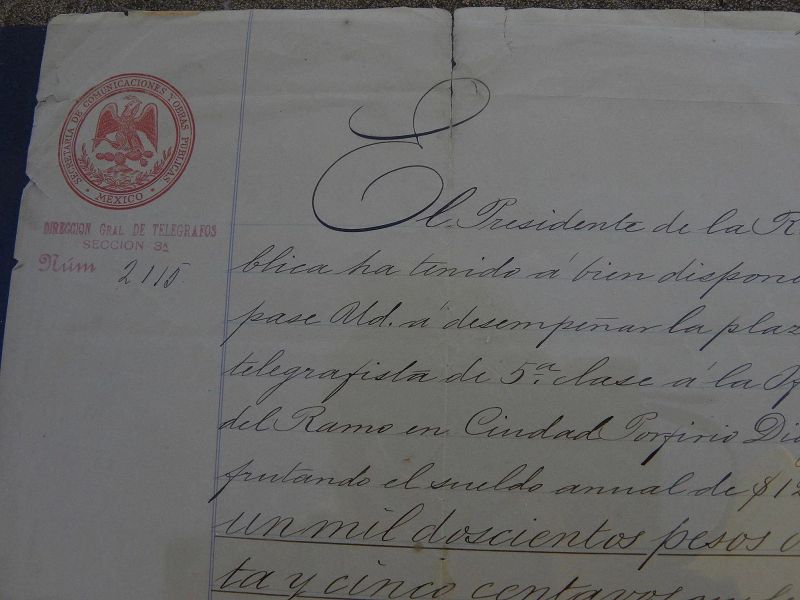 SECRETARIA DE COMUNICACIONES Y OBRAS PUBLICAS
MEXICO
DIRECCION GRAL DE TELEGRAFOS
SECCION 3A
Núm 2115.
El Presidente de la R
blica ha tenido á bien dispon
pase Ud. á desempeñar la plaz
telegrafista de 5ª clase á la Of
del Ramo en Ciudad Porfirio Dia
frutando el sueldo anual de $12
un mil doscientos pesos
ta y cinco centavos